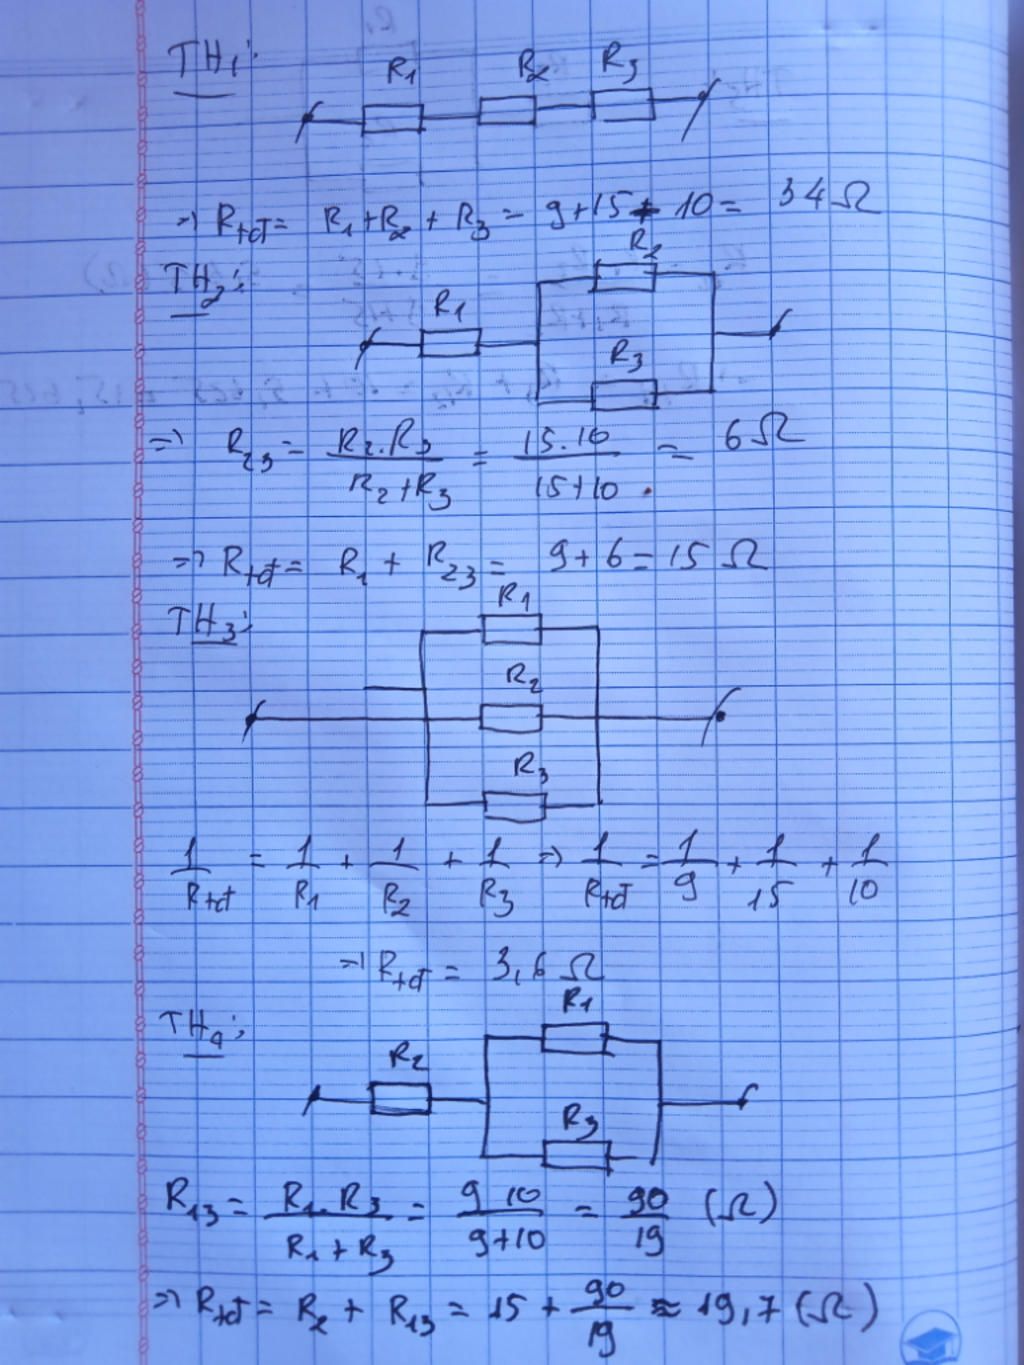 TH₁:
R₁ R₂ R₃
=> Rtđ = R₁ + R₂ + R₃ = 9 + 15 + 10 = 34 Ω
TH₂:
R₂
R₁
R₃
=> R₂₃ = R₂.R₃ / R₂ + R₃ = 15.10 / 15 + 10 = 6 Ω
=> Rtđ = R₁ + R₂₃ = 9 + 6 = 15 Ω
TH₃:
R₁
R₂
R₃
1/Rtđ = 1/R₁ + 1/R₂ + 1/R₃ => 1/Rtđ = 1/9 + 1/15 + 1/10
=> Rtđ = 3,6 Ω
TH₄:
R₁
R₂
R₃
R₁₃ = R₁.R₃ / R₁ + R₃ = 9 10 / 9 + 10 = 90/19 (Ω)
=> Rtđ = R₂ + R₁₃ = 15 + 90/19 ≈ 19,7 (Ω)